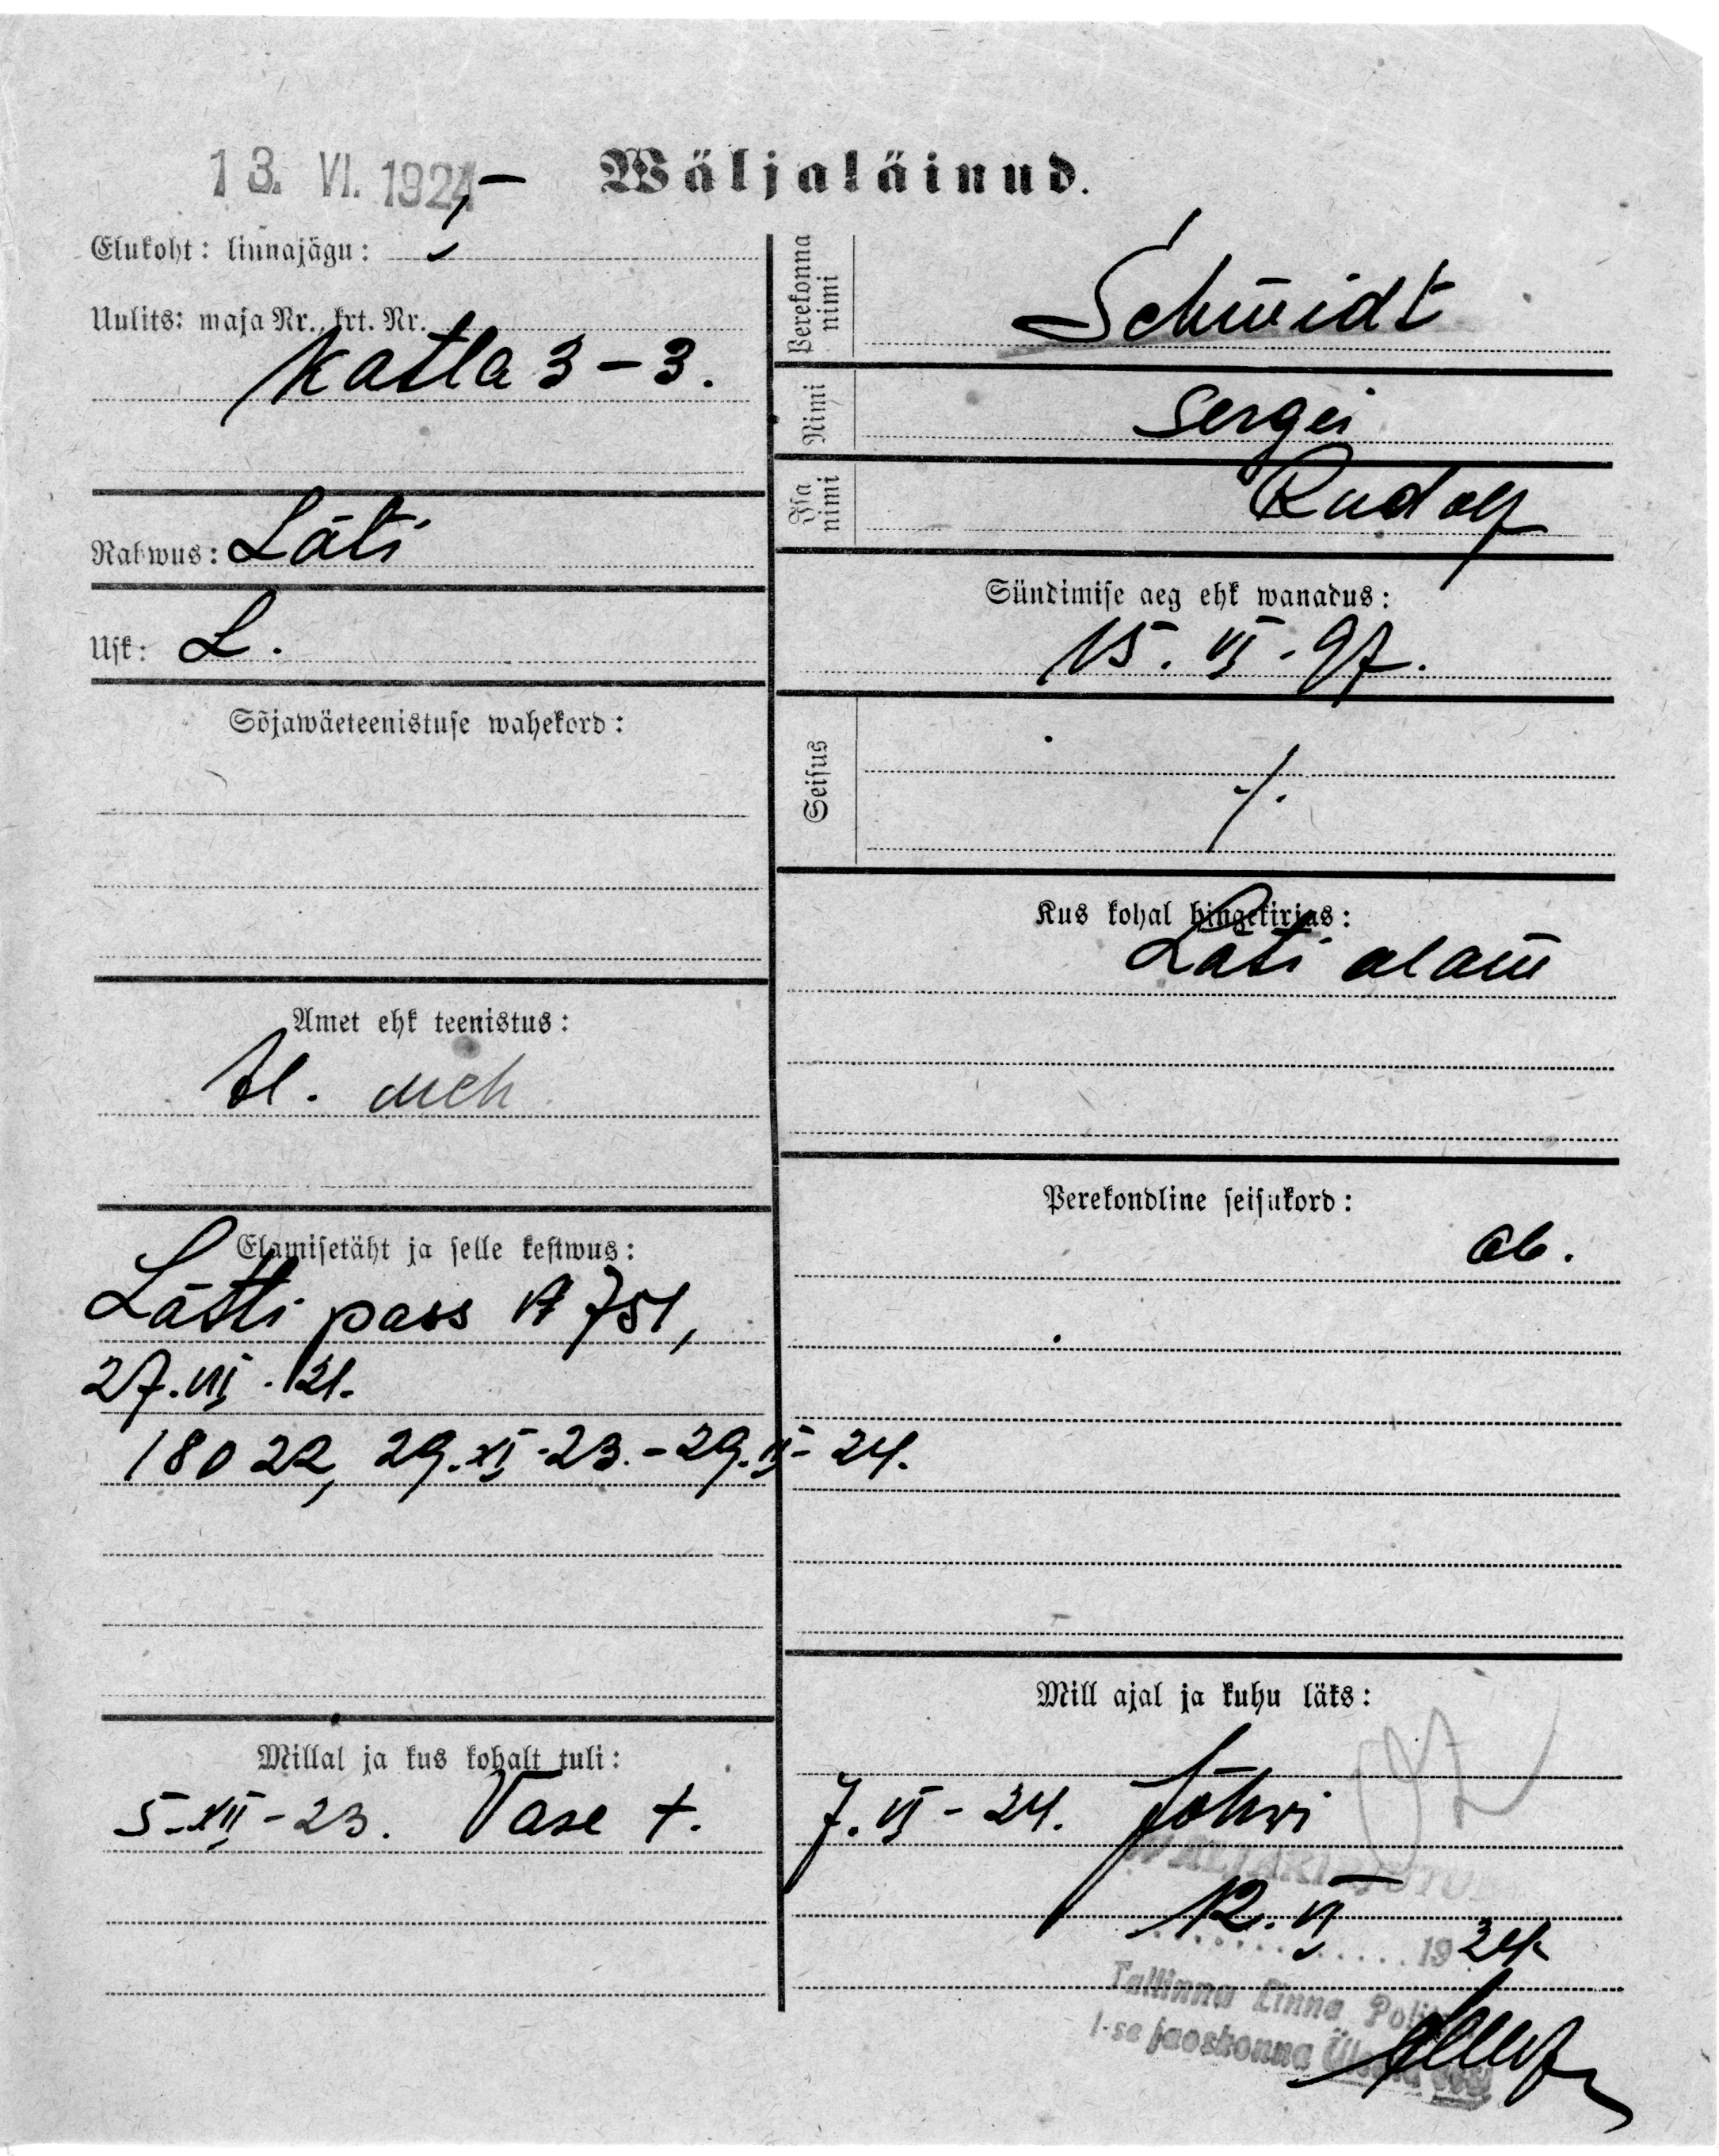 13. VI. 1924 –
Wäljaläinud.
Elukoht: linnajägu:
Uulits: maja Nr., krt. Nr.
Katla 3 – 3.
Rahwus: Läti
Usk: L.
Sõjawäeteenistuse wahekord:
Amet ehk teenistus:
Elamisetäht ja selle kestwus:
Lätti pass № 751,
27.VII.21.
18022, 29.XI-23.-29.II-24.
Millal ja kus kohalt tuli:
5-XII-23. Vase t.
Perekonna nimi
Schmidt
Nimi
Sergei
Isa nimi
Rudolf
Sündimise aeg ehk wanadus:
15. VI. 97.
Seisus
-/.
Kus kohal hingekirjas:
Läti alam
Perekondline seisukord:
ab.
Mill ajal ja kuhu läks:
7. VI - 24. Jõhwi
12. VI
19 24
Tallinna Linna
I-se jaoskonna